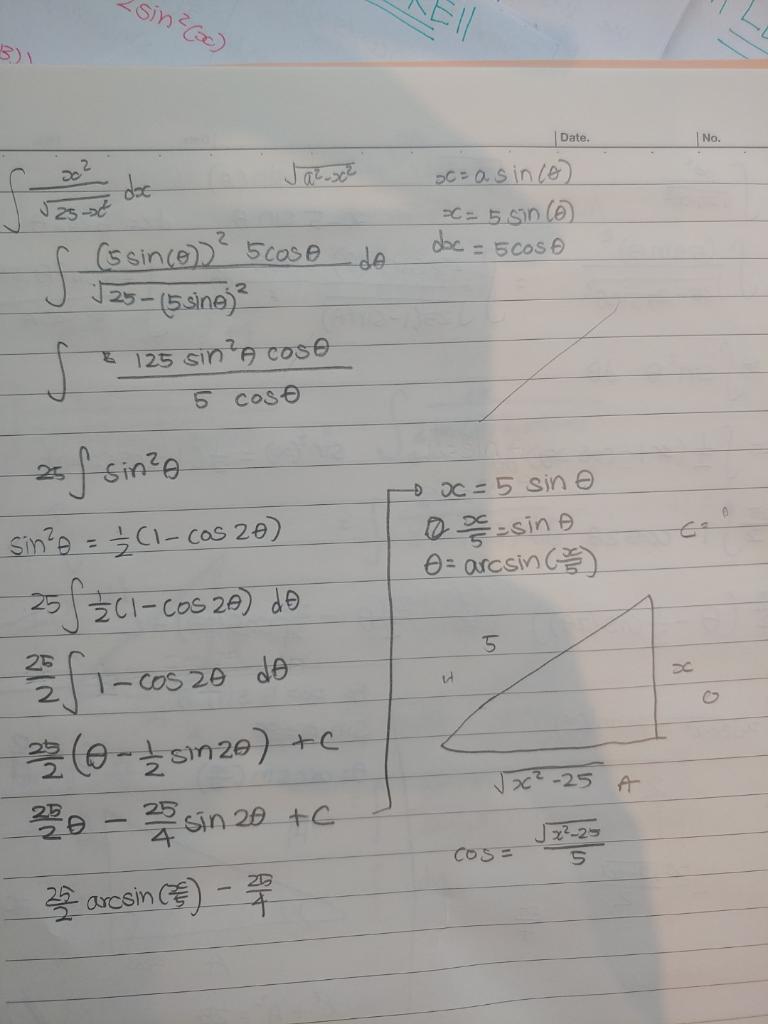 2sin²(x)
Date.
No.
∫ x²/√(25-x²) dx
√(a²-x²)
x = a sin(θ)
x = 5 sin(θ)
dx = 5cosθ
∫ (5sin(θ))² 5cosθ / √(25-(5sinθ)²) dθ
∫ 125 sin²θ cosθ / 5 cosθ
25 ∫ sin²θ
sin²θ = ½(1 - cos 2θ)
25 ∫ ½(1 - cos 2θ) dθ
25/2 ∫ 1 - cos 2θ dθ
25/2 (θ - ½ sin 2θ) + C
25/2 θ - 25/4 sin 2θ + C
25/2 arcsin(x/5) - 25/4
→ x = 5 sin θ
x/5 = sin θ
θ = arcsin(x/5)
C =
5
H
x
O
√(x² - 25) A
cos = √(x²-25)/5